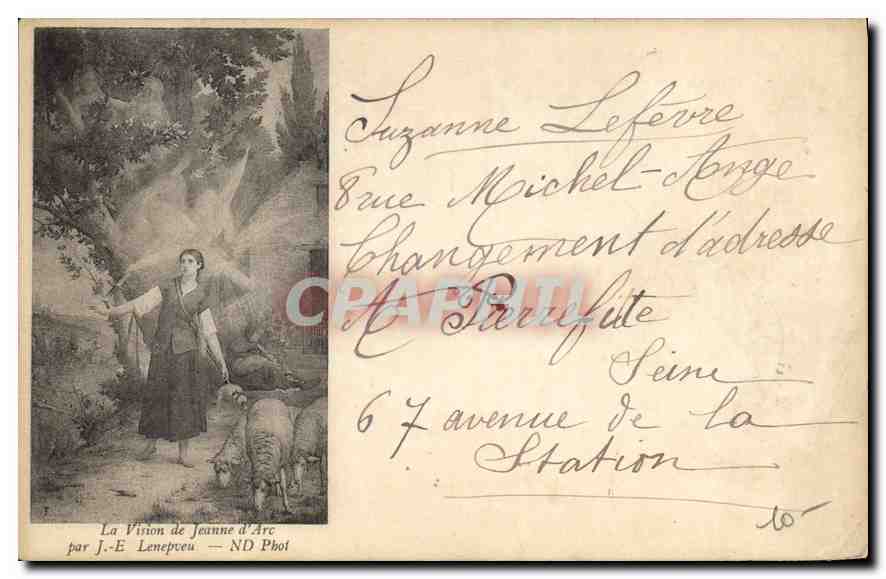 Suzanne Lefèvre
8 rue Michel-Ange
Changement d'adresse
A Pierrefite
Seine
67 avenue de la
Station
10
CPAPHIL
La Vision de Jeanne d'Arc
par J.-E Lenepveu — ND Phot